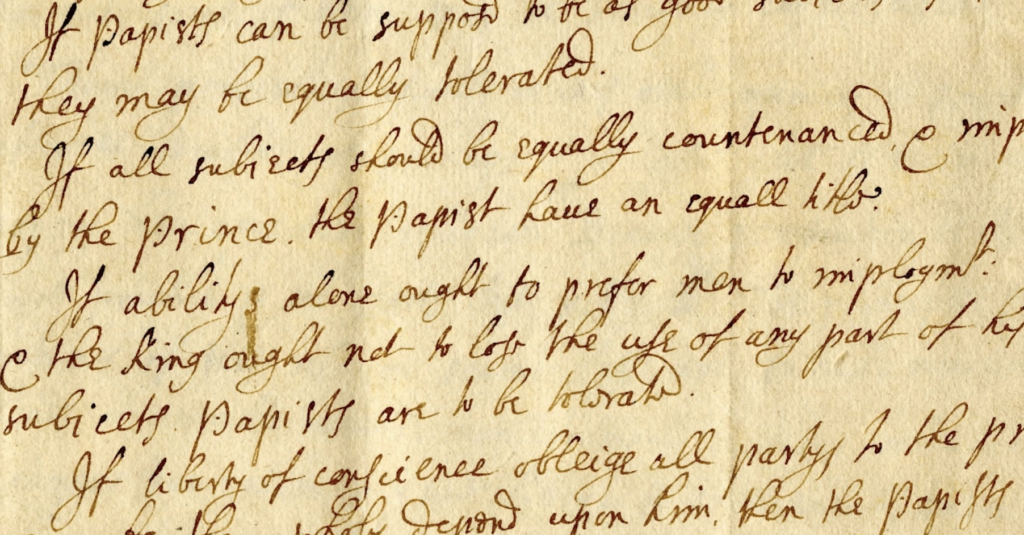 If Papists can be supposd to be as good
they may be equally tolerated.
If all subiects should be equally countenanced, & imp
by the Prince. the Papist have an equall title.
If ability alone ought to prefer men to imploymt:
& the King ought not to lose the use of any part of his
subiects Papists are to be tolerated.
If liberty of conscience obleige all partys to the pr
depend upon him, then the Papists